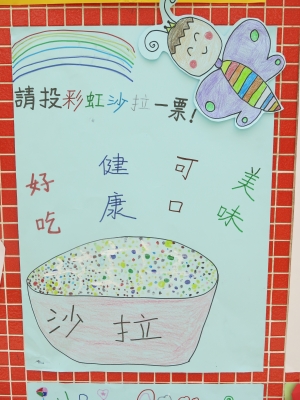 請投彩虹沙拉一票!
好吃
健康
可口
美味
沙拉